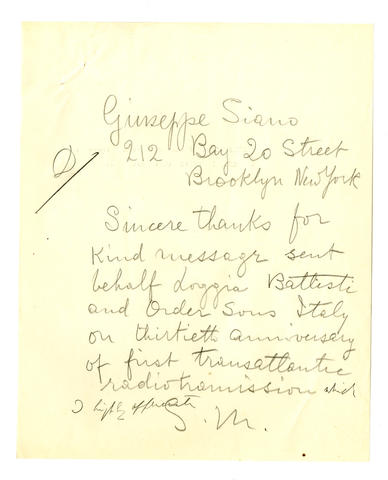 Giuseppe Siano
212 Bay 20 Street
Brooklyn New York
Sincere thanks for
kind message sent
behalf Loggia Battisti
and Order Sons Italy
on thirtieth anniversary
of first transatlantic
radiotramission which
I highly appreciate
G. M.